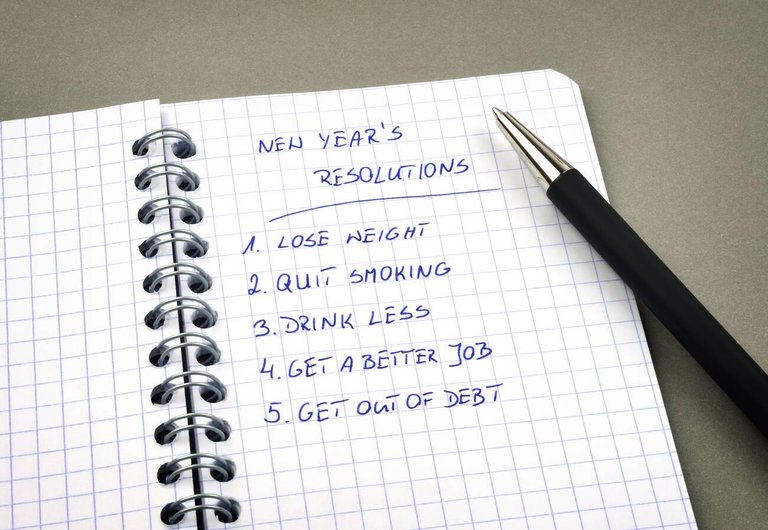 NEW YEAR'S
RESOLUTIONS
1. LOSE WEIGHT
2. QUIT SMOKING
3. DRINK LESS
4. GET A BETTER JOB
5. GET OUT OF DEBT